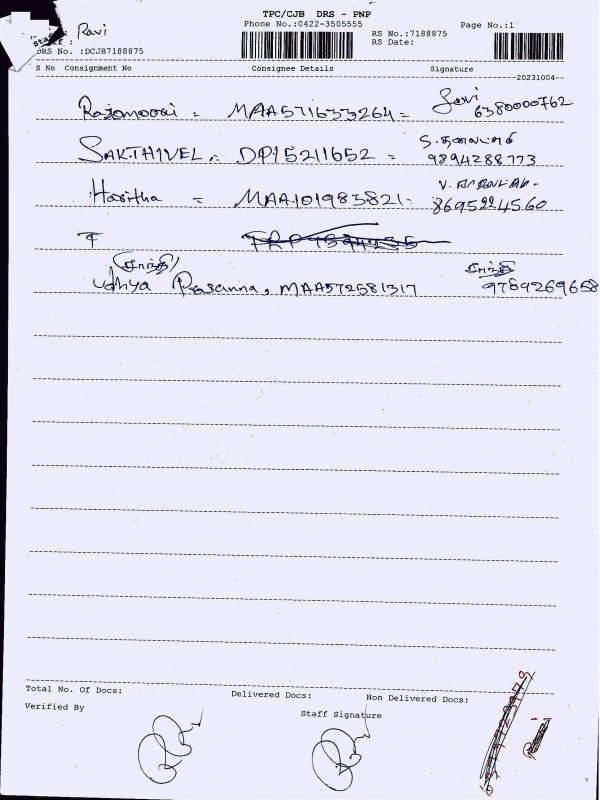 TPC/CJB DRS - PNP
Phone No.:0422-3505555
Page No.:1
RS No.:7188875
RS Date:
Ravi
DRS No. :DCJB7188875
S No Consignment No Consignee Details Signature
20231004
= MAA571633264 =
6380000762
SAKTHIVEL = DP15211652 =
9894288773
Haritha = MAA101983821 =
8695224560
(சாந்தி) சாந்தி
Udhya Prasanna, MAA572581317 9789269658
Total No. Of Docs: Delivered Docs: Non Delivered Docs:
Verified By Staff Signature